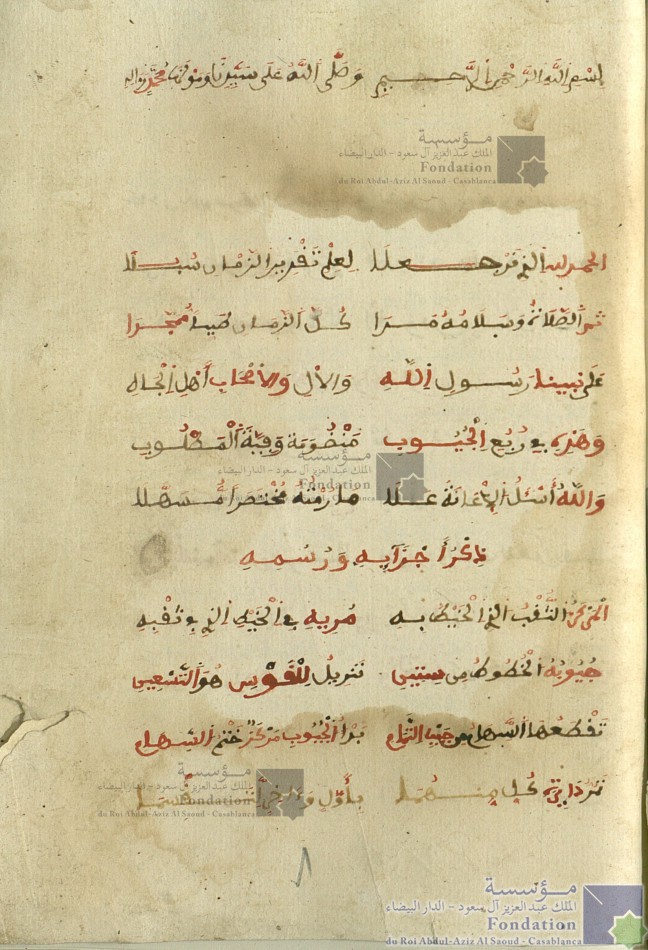 بسم الله الرحمن الرحيم وصلى الله على سيدنا ومولانا محمد وآله
مؤسسة
الملك عبد العزيز آل سعود - الدار البيضاء
Fondation
du Roi Abdul-Aziz Al Saoud - Casablanca
الحمد لله الذي قد جعلا لعلم تقدير الزمان سبلا
ثم الصلاة وسلامه مدا كل الزمان
على نبينا رسول الله والآل والأصحاب أهل الجاه
وهذه في ربع الجيوب منظومة وفية المطلوب
مؤسسة
الملك عبد العزيز آل سعود - الدار البيضاء
Fondation
du Roi Abdul-Aziz Al Saoud - Casablanca
والله أسئل الإعانة على ما رمته مختصرا مسهلا
ذكر أجزايه ورسمه
المركز الثقب الذي الخيط به مريه في الخيط الذي تفيه
جيوبه الخطوط من ستين تنزيل للقوس هو التسعين
تقطعها السهام من جنب التمام بدأ الجيوب مركز ختم السهام
كل منهما بأول
مؤسسة
الملك عبد العزيز آل سعود - الدار البيضاء
Fondation
du Roi Abdul-Aziz Al Saoud - Casablanca
مؤسسة
الملك عبد العزيز آل سعود - الدار البيضاء
Fondation
du Roi Abdul-Aziz Al Saoud - Casablanca